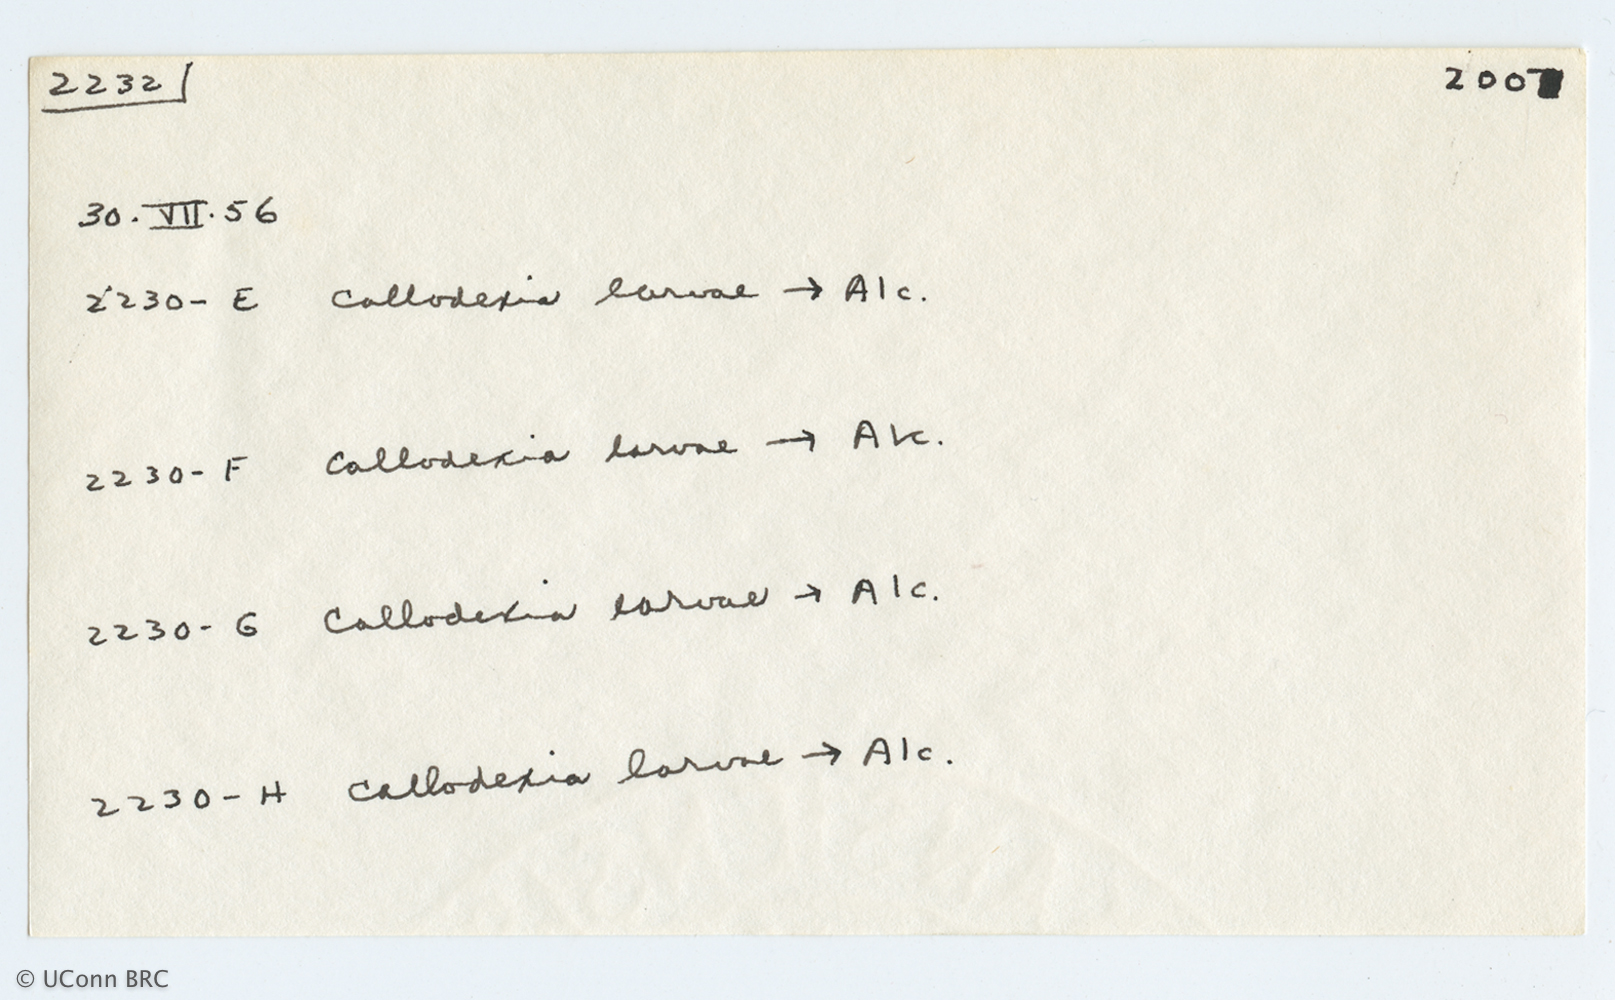 2232 2007
30.VII.56
2230-E Callodexia larvae → Alc.
2230-F Callodexia larvae → Alc.
2230-G Callodexia larvae → Alc.
2230-H Callodexia larvae → Alc.
© UConn BRC